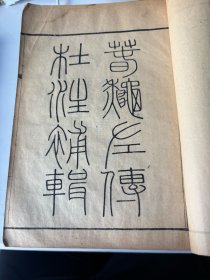 春秋左傳
杜注補輯